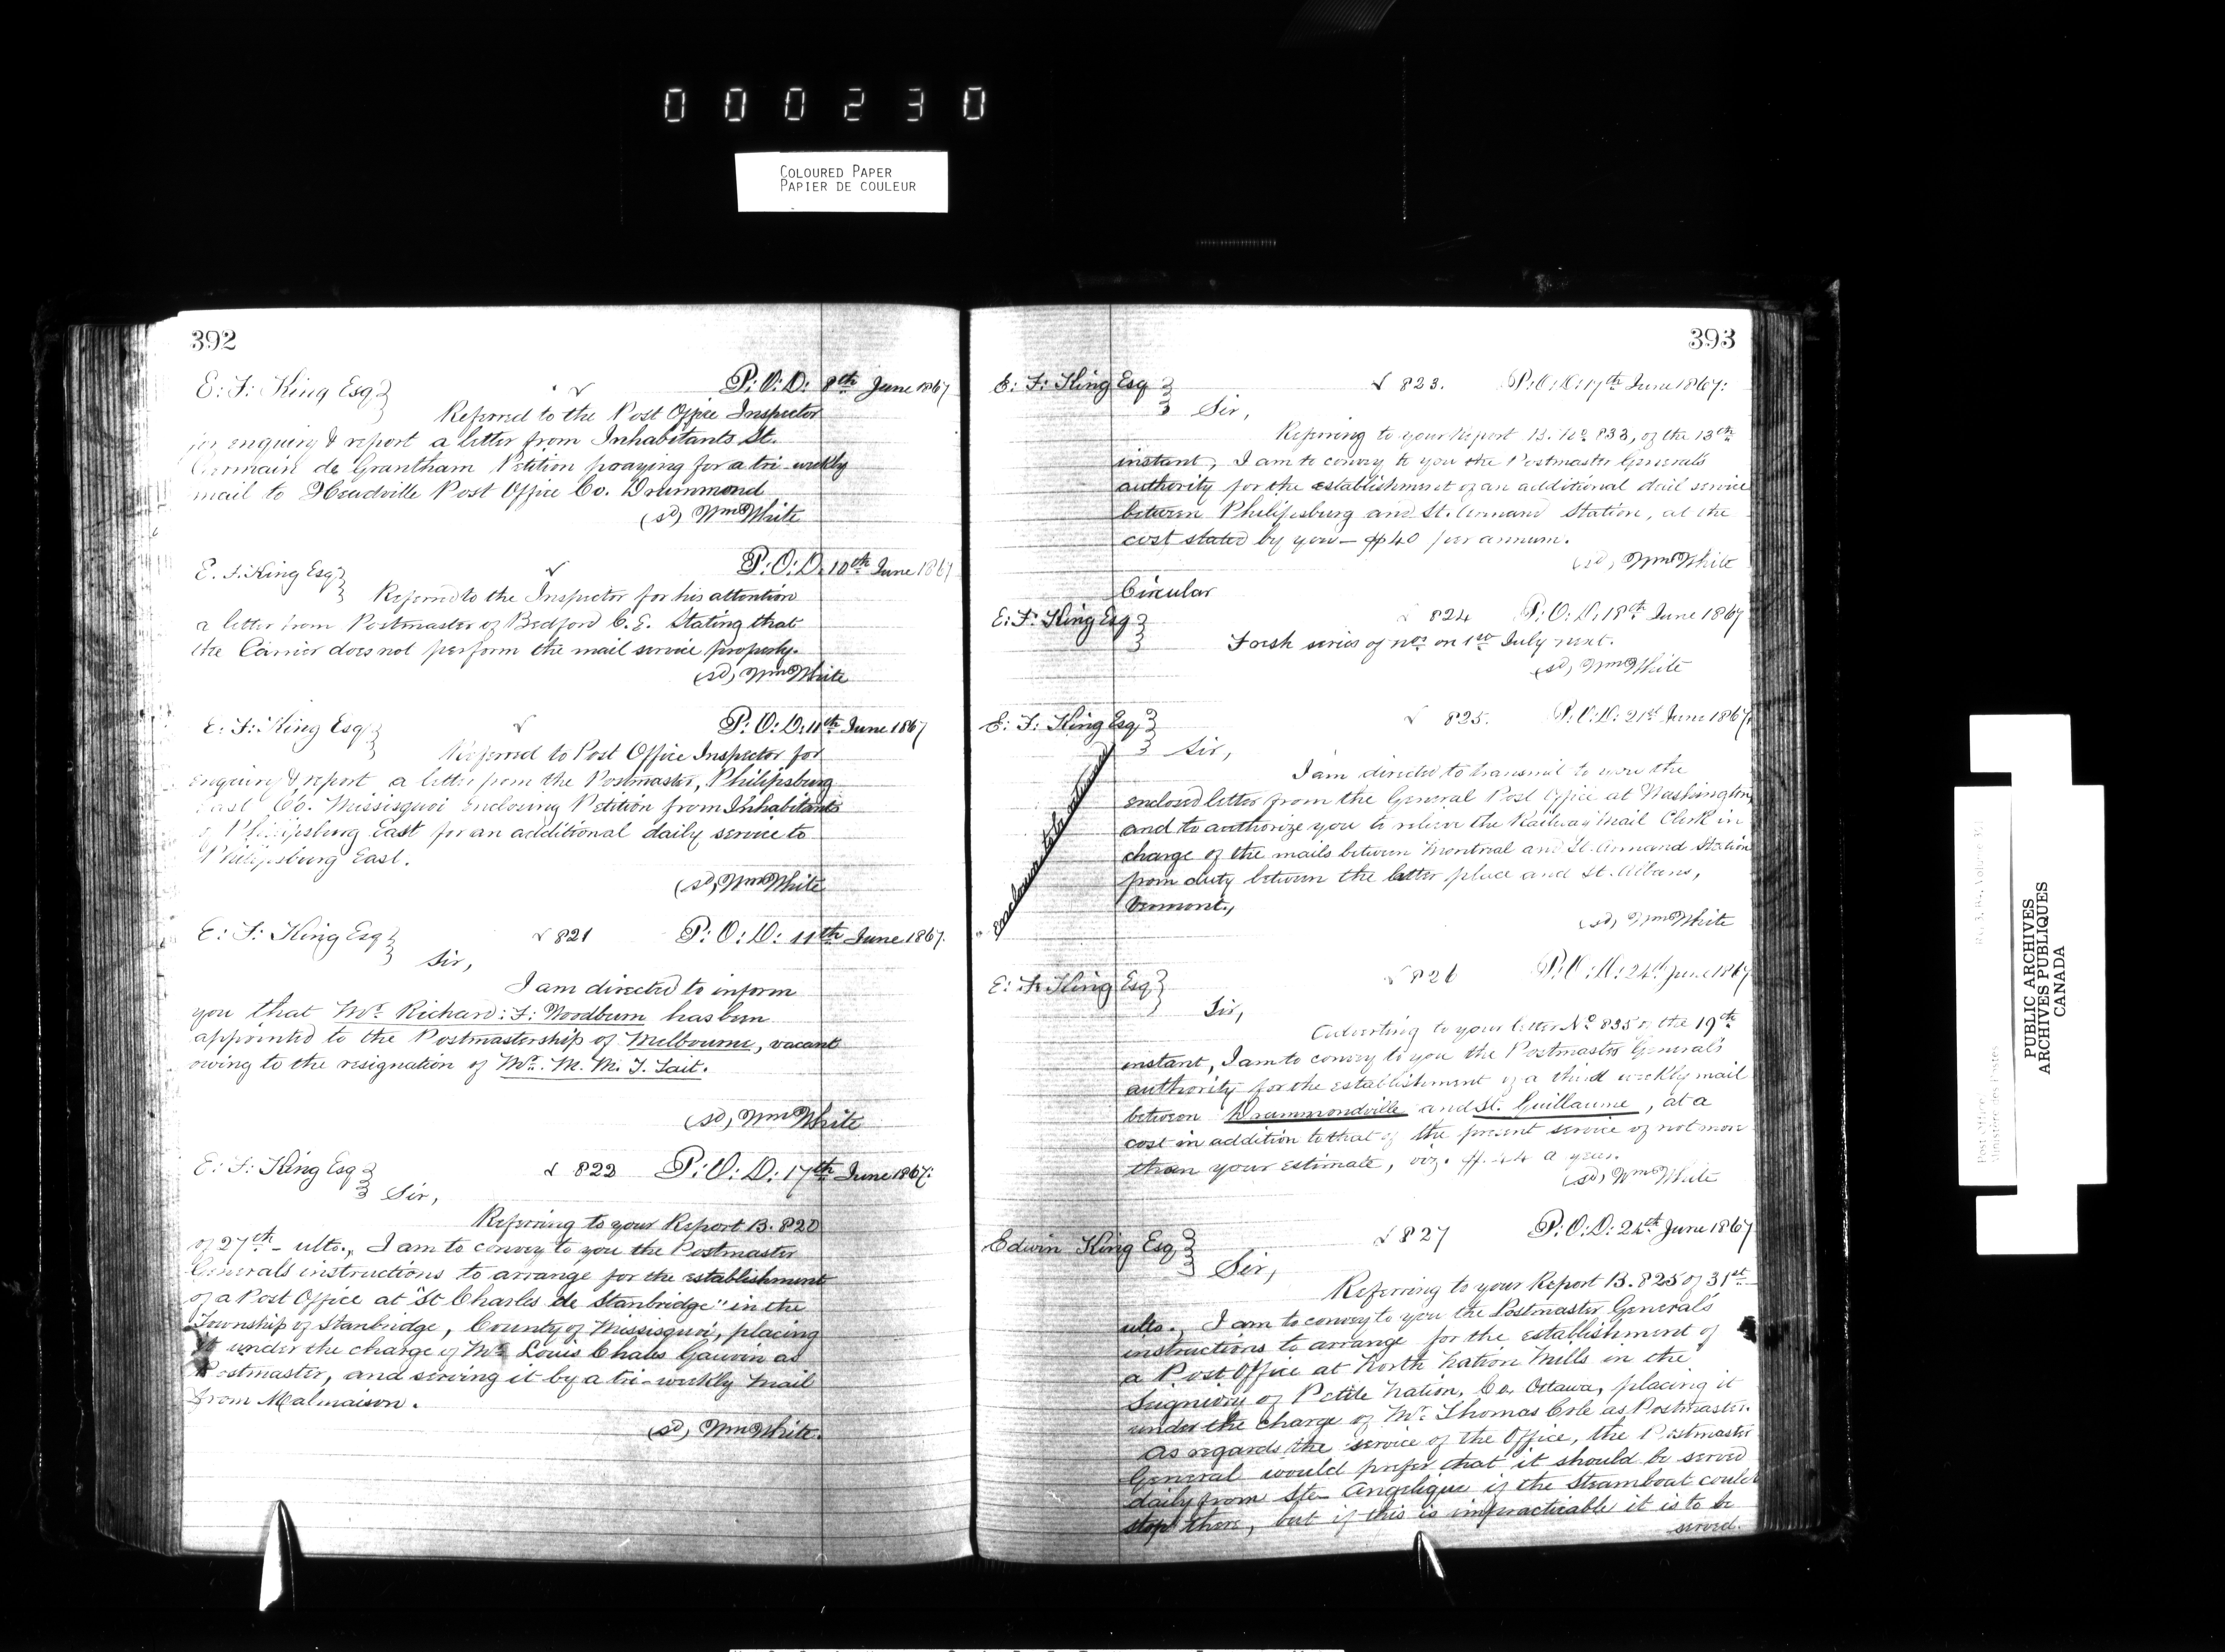 000230
COLOURED PAPER
PAPIER DE COULEUR
392
E: F: King Esq
P: O: D: 8th June 1867
Referred to the Post Office Inspector
for enquiry & report a letter from Inhabitants St.
Germain de Grantham Petition praying for a tri-weekly
mail to Headville Post Office Co. Drummond
(sd) Wm White
E. F. King Esq
P: O: D: 10th June 1867
Referred to the Inspector for his attention
a letter from Postmaster of Bedford C. E. Stating that
the Carrier does not perform the mail service properly.
(sd) Wm White
E: F: King Esq
P: O: D: 11th June 1867
Referred to Post Office Inspector for
enquiry & report a letter from the Postmaster, Philipsburg
East Co. Missisquoi enclosing Petition from Inhabitants
of Philipsburg East for an additional daily service to
Philipsburg East.
(sd) Wm White
E: F: King Esq
821 P: O: D: 11th June 1867.
Sir,
I am directed to inform
you that Mr. Richard: F: Woodburn has been
appointed to the Postmastership of Melbourne, vacant
owing to the resignation of Mr. M. M. T. Tait.
(sd) Wm White
E: F: King Esq
822 P: O: D: 17th June 1867:
Sir,
Referring to your Report B. 820
of 27th ulto., I am to convey to you the Postmaster
Generals instructions to arrange for the establishment
of a Post Office at "St Charles de Stanbridge" in the
Township of Stanbridge, County of Missisquoi, placing
it under the charge of Mr. Louis Chales Gauvin as
Postmaster, and serving it by a tri-weekly mail
from Malmaison.
(sd) Wm White.
393
E: F: King Esq
823. P: O: D: 17th June 1867:
Sir,
Referring to your Report B. No 833, of the 13th
instant, I am to convey to you the Postmaster General's
authority for the establishment of an additional dail service
between Philipsburg and St. Armand Station, at the
cost stated by you - $40 per annum.
(sd) Wm White
Circular
E: F: King Esq
824 P: O: D: 18th June 1867
Fresh series of nos on 1st July next.
(sd) Wm White
E: F: King Esq
825. P: O: D: 21st June 1867.
Sir,
enclosure to be returned
I am directed to transmit to you the
enclosed letter from the General Post Office at Washington,
and to authorize you to relieve the Railway Mail Clerk in
charge of the mails between Montreal and St. Armand Station
from duty between the latter place and St. Albans,
Vermont.,
(sd) Wm White
E: F: King Esq
826 P: O: D: 24th June 1867
Sir,
Adverting to your letter No 835 of the 19th
instant, I am to convey to you the Postmaster General's
authority for the establishment of a third weekly mail
between Drummondville and St. Guillaume, at a
cost in addition to that of the present service of not more
than your estimate, viz. $44 a year.
(sd) Wm White
Edwin King Esq
827 P: O: D: 24th June 1867
Sir,
Referring to your Report B. 825 of 31st
ulto., I am to convey to you the Postmaster General's
instructions to arrange for the establishment of
a Post Office at North Nation Mills in the
Seigniory of Petite Nation, Co. Ottawa, placing it
under the charge of Mr. Thomas Cole as Postmaster.
As regards the service of the Office, the Postmaster
General would prefer that it should be served
daily from Ste Angelique if the Steamboat could
stop there, but if this is impracticable it is to be
served.
PUBLIC ARCHIVES
ARCHIVES PUBLIQUES
CANADA